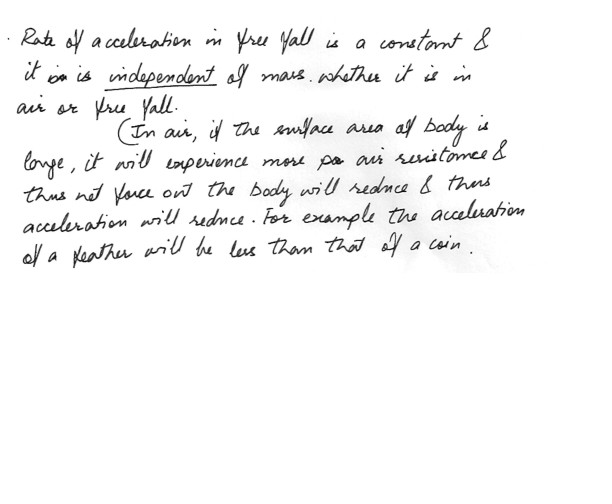 . Rate of acceleration in free fall is a constant &
it is is independent of mass. whether it is in
air or free fall.
(In air, if the surface area of body is
large, it will experience more air resistance &
thus net force out the body will reduce & thus
acceleration will reduce. For example the acceleration
of a feather will be less than that of a coin.